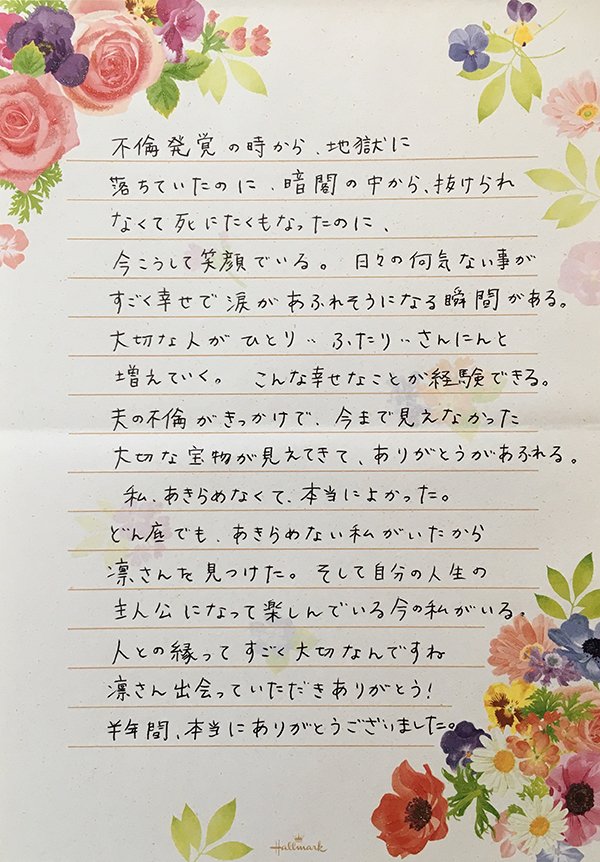 不倫発覚の時から、地獄に
落ちていたのに、暗闇の中から、抜けられ
なくて死にたくもなったのに、
今こうして笑顔でいる。日々の何気ない事が
すごく幸せで涙があふれそうになる瞬間がある。
大切な人がひとり‥ふたり‥さんにんと
増えていく。こんな幸せなことが経験できる。
夫の不倫がきっかけで、今まで見えなかった
大切な宝物が見えてきて、ありがとうがあふれる。
私、あきらめなくて、本当によかった。
どん底でも、あきらめない私がいたから
凛さんを見つけた。そして自分の人生の
主人公になって楽しんでいる今の私がいる。
人との縁ってすごく大切なんですね
凛さん出会っていただきありがとう!
半年間、本当にありがとうございました。
Hallmark